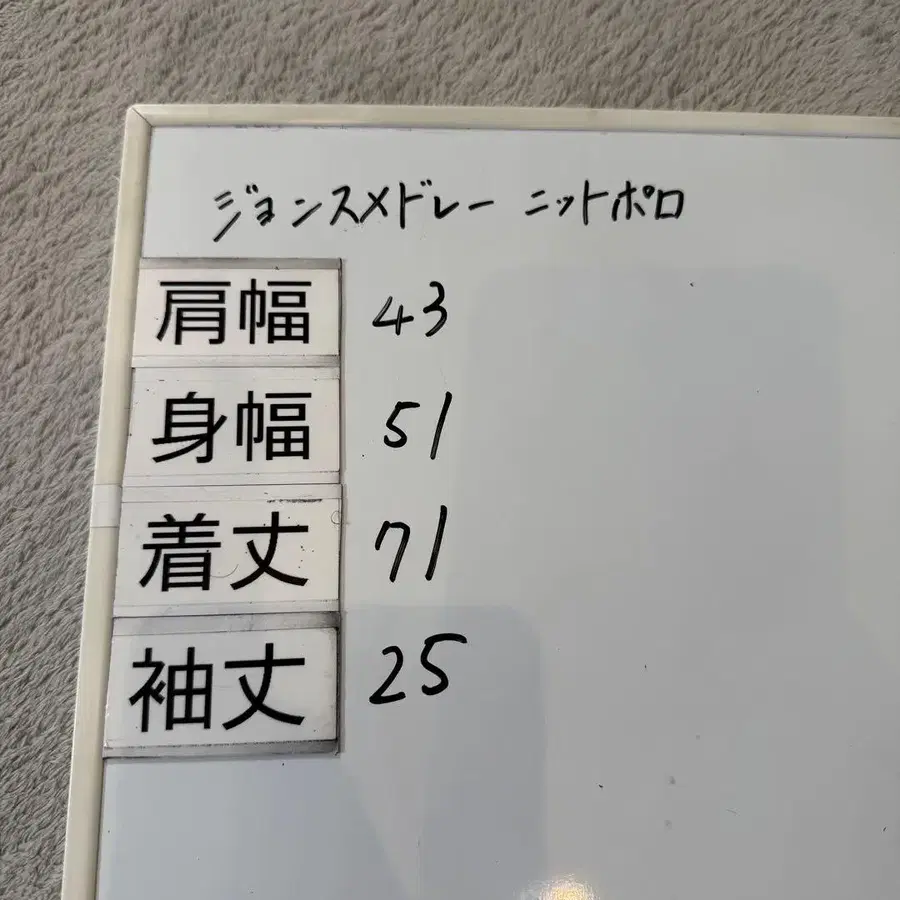 ジョンスメドレー ニットポロ
肩幅 43
身幅 51
着丈 71
袖丈 25